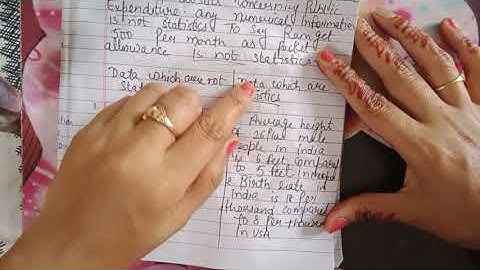 concerning Public
Expenditure. any numerical information
is not statistics to say Ram get
500 Per month as Pocket
allowance is not statistics
Data which are not
Data which are
Average height
of 26 Plus male
People in India
6 feet compared
to 5 feet in
2 Birth Rate in
India is 18 Per
thousand compared
to 8 Per thousand
In USA